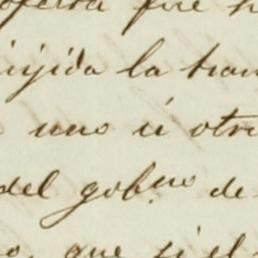 oferta fue h
irijida la tran
uno ú otro
del gob.no de
o, que si el